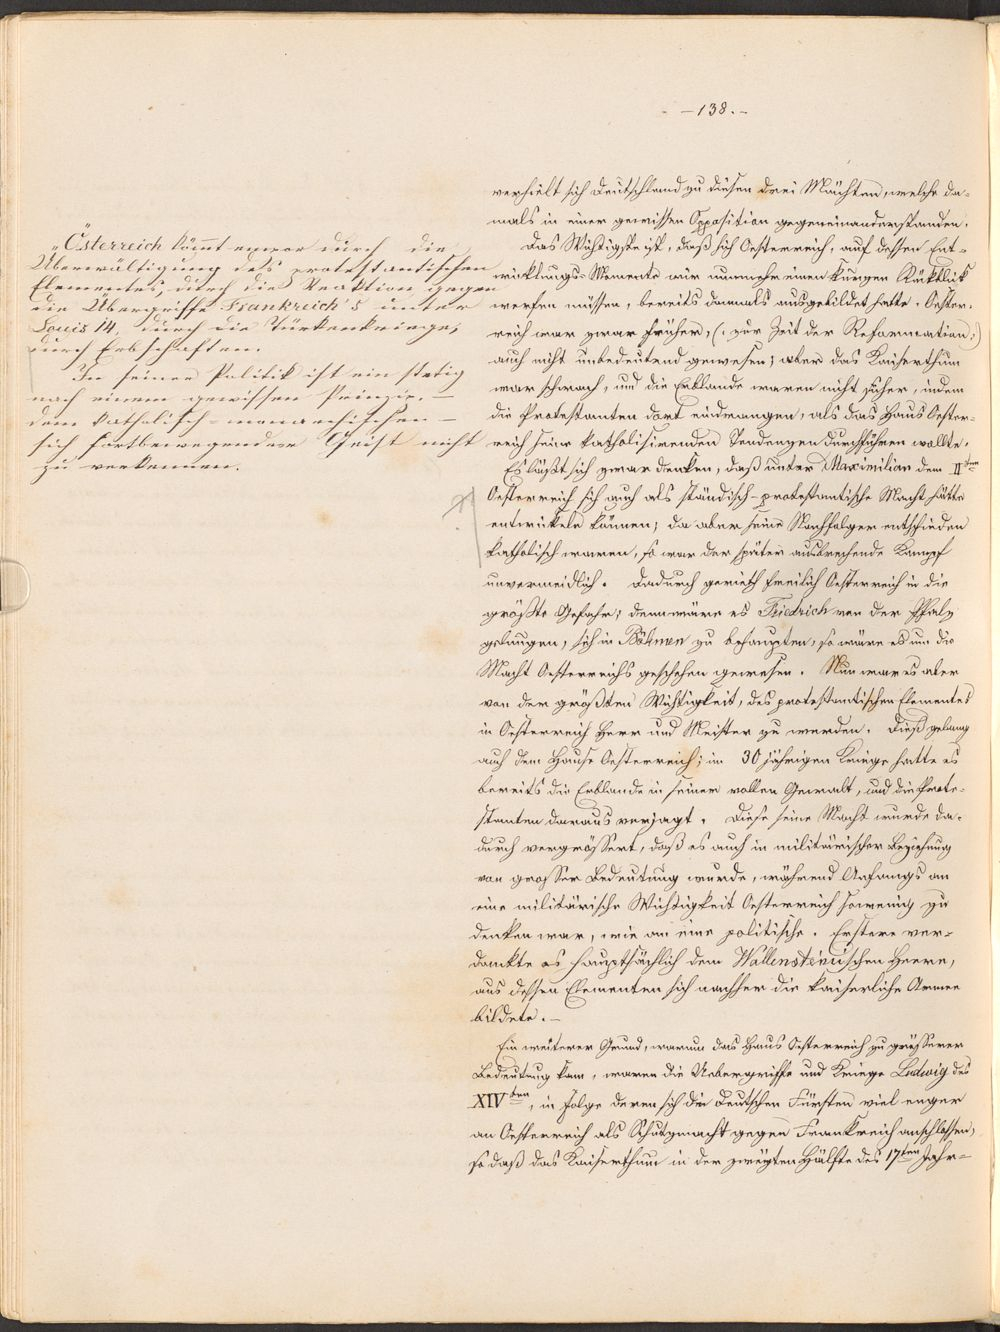 - -138.-
verhielt sich Deutschland zu diesen drei Mächten, welche da-
mals in einer gewissen Opposition gegeneinanderstanden.
Das Wichtigste ist, daß sich Oesterreich, auf dessen Ent-
wicklungs-Momente wir nunmehr einen kurzen Rückblick
werfen müssen, bereits damals ausgebildet hatte. Oester-
reich war zwar früher, (: zur Zeit der Reformation:)
auch nicht unbedeutend gewesen; aber das Kaiserthum
war schwach, und die Erblande waren nicht sicher, indem
die Protestanten dort eindrangen, als das Haus Oester-
reich seine katholisirenden Tendenzen durchführen wollte.
Es läßt sich zwar denken, daß unter Maximilian dem IIten
Oesterreich sich auch als ständisch-protestantische Macht hätte
entwickeln können; da aber seine Nachfolger entschieden
katholisch waren, so war der später ausbrechende Kampf
unvermeidlich. Dadurch gerieth freilich Oesterreich in die
größte Gefahr; denn wäre es Friedrich von der Pfalz
gelungen, sich in Böhmen zu behaupten, so wäre es um die
Macht Oesterreichs geschehen gewesen. Nun war es aber
von der größten Wichtigkeit, des protestantischen Elementes
in Oesterreich Herr und Meister zu werden. Dieß gelang
auch dem Hause Oesterreich; im 30 jährigen Kriege hatte es
bereits die Erblande in seiner vollen Gewalt, und die Prote-
stanten daraus verjagt. Diese seine Macht wurde da-
durch vergrössert, daß es auch in militärischer Beziehung
von grosser Bedeutung wurde, während Anfangs an
eine militärische Wichtigkeit Oesterreich sowenig zu
denken war, wie an eine politische. Erstere ver-
dankte es hauptsächlich dem Wallensteinischen Heere,
aus dessen Elementen sich nachher die kaiserliche Armee
bildete.-
Ein weiterer Grund, warum das Haus Oesterreich zu grösserer
Bedeutung kam, waren die Uebergriffe und Kriege Ludwig des
XIVten, in Folge deren sich die Deutschen Fürsten viel enger
an Oesterreich als Schutzmacht gegen Frankreich anschlossen,
so daß das Kaiserthum in der zweyten Hälfte des 17ten Jahr-
„Österreich kömt empor durch die
Überwältigung des protestantischen
Elementes, durch die Reaktion gegen
die Übergriffe Frankreich's unter
Louis 14, durch die Türkenkriege,
durch Erbschaften.
In seiner Politik ist ein stetig
nach einem gewissen Prinzip, -
dem katholisch-monarchischen -
sich fortbewegender Geist nicht
zu verkennen.